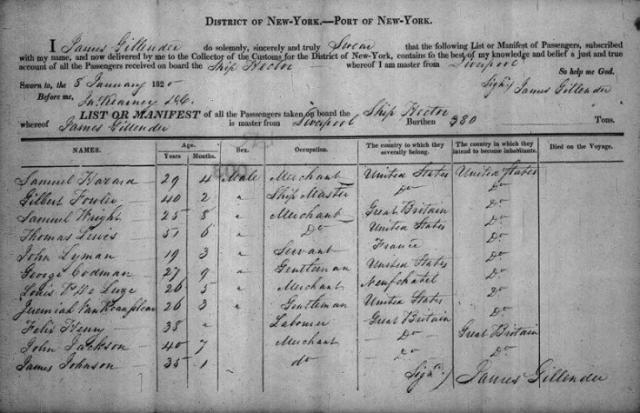 DISTRICT OF NEW-YORK.—PORT OF NEW-YORK.
I James Gillender do solemnly, sincerely and truly Swear that the following List or Manifest of Passengers, subscribed
with my name, and now delivered by me to the Collector of the Customs for the District of New-York, contains to the best of my knowledge and belief a just and true
account of all the Passengers received on board the Ship Hector whereof I am master from Liverpool
So help me God.
Sworn to, the 8 January 1820
Signd James Gillender
Before me,
LIST OR MANIFEST of all the Passengers taken on board the Ship Hector
whereof James Gillender is master from Liverpool Burthen 380 Tons.
NAMES. Age. Years Months. Sex. Occupation. The country to which they severally belong. The country in which they intend to become inhabitants. Died on the Voyage.
Samuel Hazard 29 4 Male Merchant United States United States
Gilbert Fowler 40 2 " Ship Master Do Do
Samuel Wright 25 8 " Merchant Great Britain Do
Thomas Lewis 51 6 " Do United States Do
John Lyman 19 3 " Servant France Do
George Codman 27 9 " Gentleman United States Do
Louis De Luze 26 5 " Merchant Neufchatel Do
Jeremiah Van 26 3 " Gentleman United States Do
Felix Henry 38 " Labourer Great Britain Do
John Jackson 40 7 Merchant Do Great Britain
James Johnson 35 1 do Do Do
Signd James Gillender